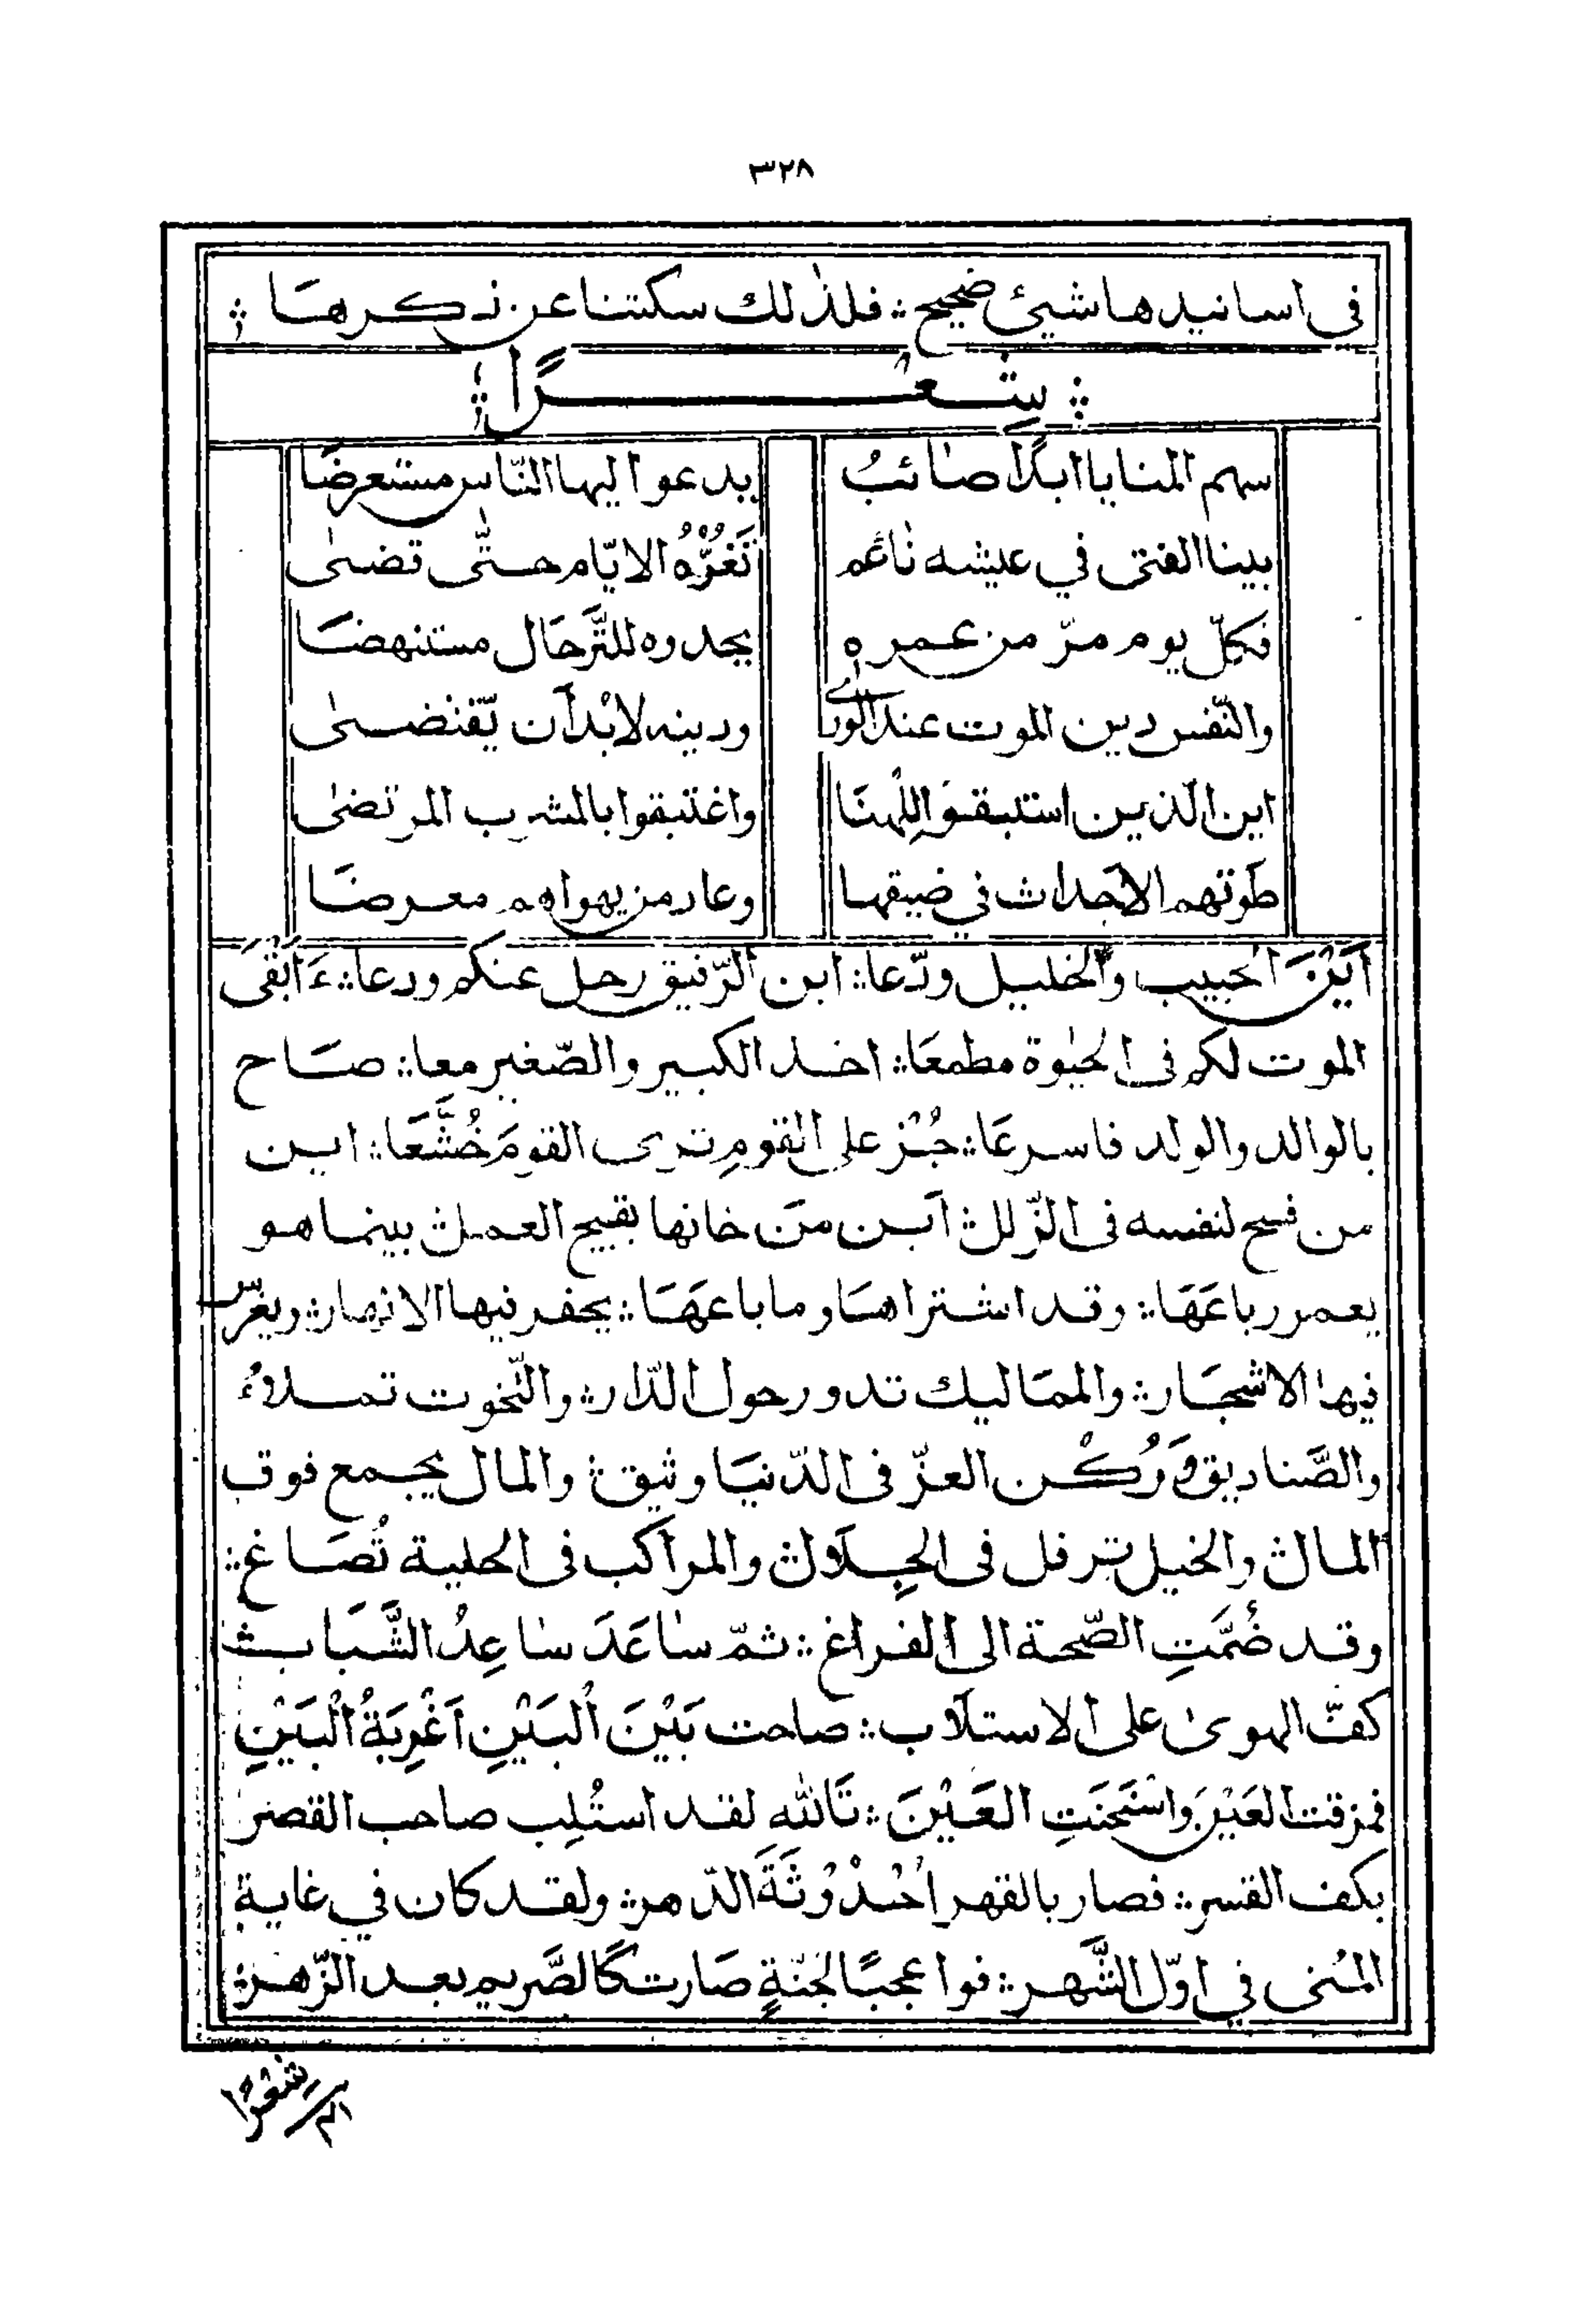 ٣٢٨
في اسانيدها شيئ صحيح ؛ فلذلك سكتنا عن ذكرها ؛
شعرًا
سهم المنايا ابدًا صائبُ يدعوا اليها الناس مستعرضًا
بينا الفتى في عيشه ناعم تَغُرُّهُ الايّام حتّى تقضىٰ
فكلّ يوم مرّ من عمره يحدوه للتَّرحَال مستنهضَا
والنّفس دين الموت عند الورىٰ ودينه لابُدَّ ان يّقتضىٰ
اين الذين استبقوا للهنَا واغتبقوا بالمشرب المرتضىٰ
طَوتهم الاجداث في ضيقها وعاد من يهواهم معرضَا
اَيْنَ الحبيب والخليل ودّعا ؛ اين الرّفيق رحل عنكم ودعا ؛ ءَاَبْقَى
الموت لكم فى الحيٰوة مطمعَا ؛ اخذ الكبير والصّغير معا ؛ صَاح
بالوالد والولد فاسرعَا ؛ جُزْ على القومِ ترى القومَ خُشَّعَا ؛ اين
من فسح لنفسه فى الزّلل ؛ اَين مَن خانها بقبيح العمل ؛ بينما هو
يعمر رباعَهَا ؛ وقد اشتراها وما باعهَا ؛ يحفر فيها الانهار ؛ ويغرس
فيها الاشجَار ؛ والممَاليك تدور حول الدّار ؛ والتّخوت تملاءُ
والصَّناديق وَرُكْن العزّ فى الدّنيَا وثيق ؛ والمال يجمع فوق
المال ؛ والخيل ترفل فى الجِلَال ؛ والمراكب فى الحلية تُصَاغ ؛
وقد ضُمَّتِ الصّحة الى الفراغ ؛ ثمّ سَاعَدَ سَاعِدُ الشَّبَاب ؛
كفّ الهوىٰ على الاستلَاب ؛ صاحت بَيْنَ الْبَيْنِ اَغْرِبَةُ الْبَيْنِ
فمزقت العَيْنَ واسْتَحَنَتِ العَيْنَ ؛ تَاللّٰه لقد استُلِب صاحب القصر
بكف القسر ؛ فصار بالقهر اُحْدُوْثَةَ الدّهر ؛ ولقد كان في غاية
المُنى في اوّل الشَّهر ؛ فوا عجبًا لجنّةٍ صَارت كَالصَّريم بعد الزّهر ؛
شعرًا